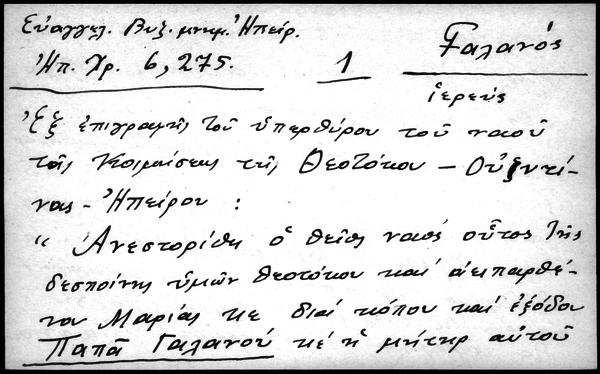 Εὐαγγελ. Βυζ. μνημ. Ἠπείρ.
Ἠπ. Χρ. 6, 275.
1
Γαλανός
ἱερεύς
Ἐξ ἐπιγραφῆς τοῦ ὑπερθύρου τοῦ ναοῦ
τῆς Κοιμήσεως τῆς Θεοτόκου – Οὐζντί-
νας – Ἠπείρου :
“ Ἀνεστορίθη ὁ θεῖος ναός οὗτος τῆς
δεσποίνης ὑμῶν Θεοτόκου καί ἀειπαρθέ-
νου Μαρίας κε διά κόπου καί ἐξόδου
Παπᾶ Γαλανοῦ κέ ἡ μήτηρ αὐτοῦ